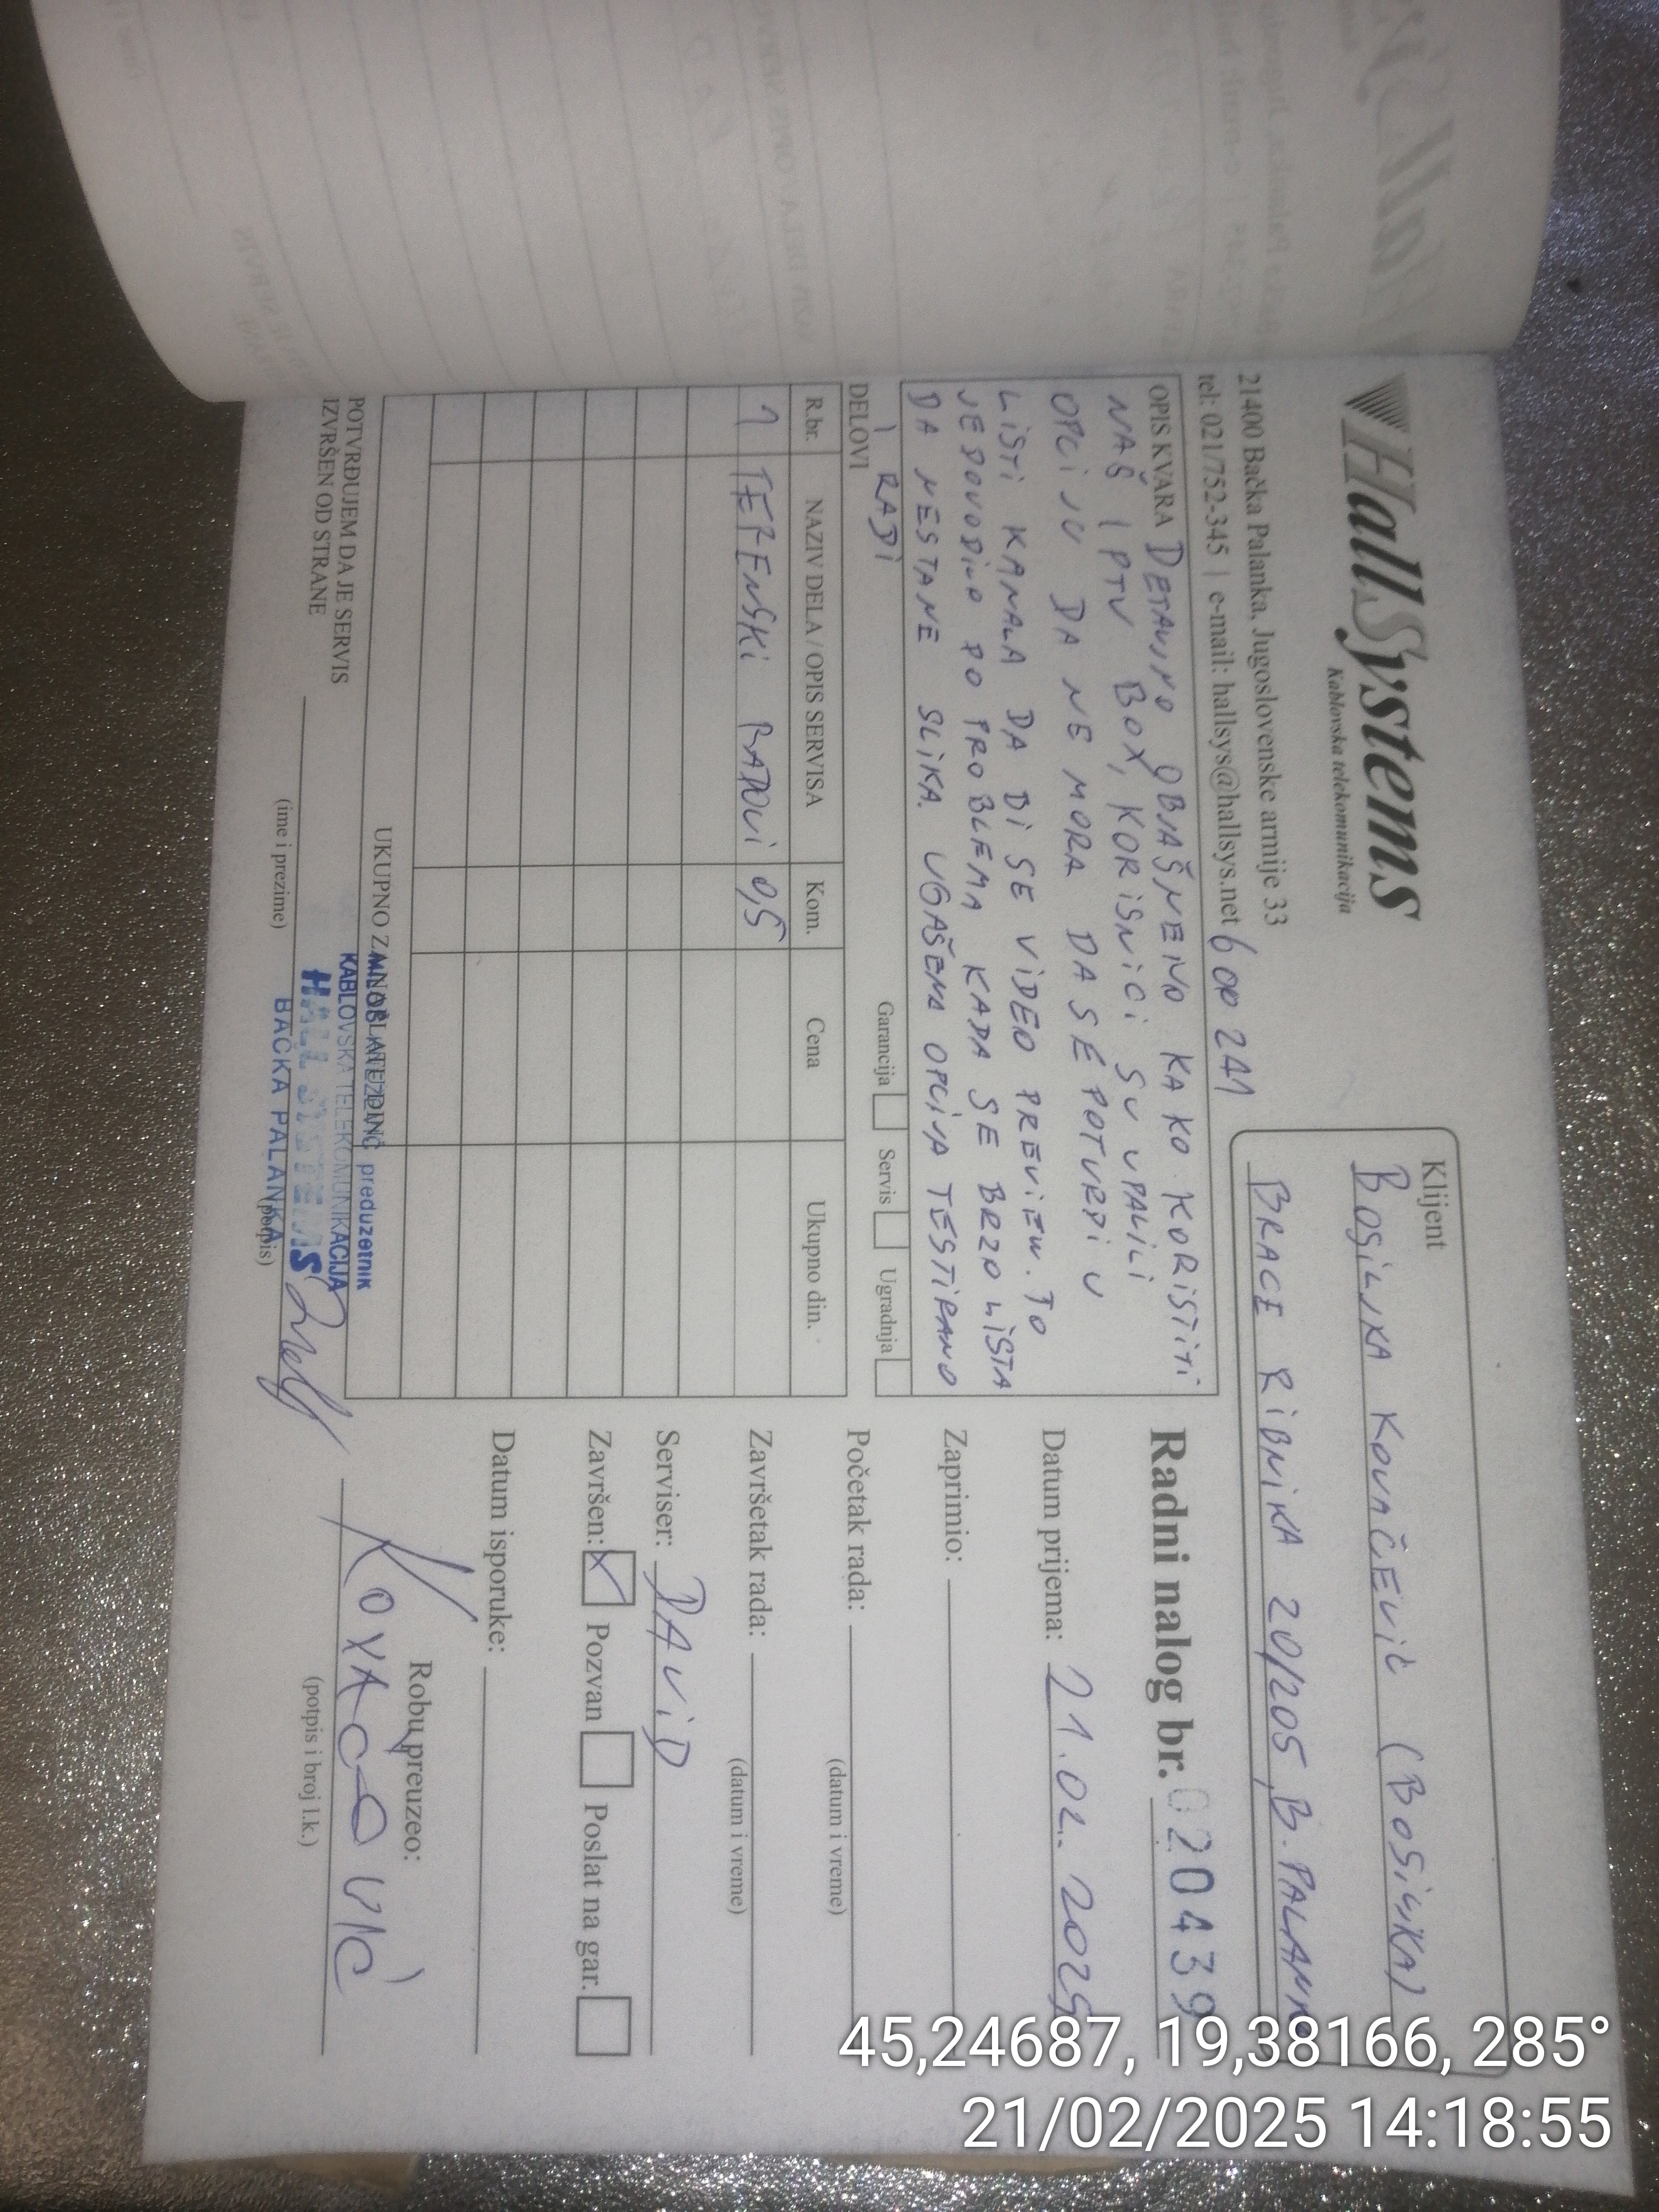 HallSystems
Kablovska telekomunikacija
21400 Bačka Palanka, Jugoslovenske armije 33
tel: 021/752-345 | e-mail: hallsys@hallsys.net
600 241
Klijent
BOSILJKA KOVAČEVIĆ (BOSILJKA)
BRAĆE RIBNIKA 20/205, B. PALANKA
OPIS KVARA DETALJNO OBJAŠNJENO KAKO KORISTITI
NAŠ IPTV BOX, KORISNICI SU UPALILI
OPCIJU DA NE MORA DA SE POTVRDI U
LISTI KANALA DA BI SE VIDEO PREVIEW. TO
JE DOVODILO DO PROBLEMA KADA SE BRZO LISTA
DA NESTANE SLIKA. UGAŠENA OPCIJA TESTIRANO
I RADI
Garancija Servis Ugradnja
DELOVI
R.br. NAZIV DELA / OPIS SERVISA Kom. Cena Ukupno din.
1 TERENSKI RADOVI 0,5
UKUPNO ZA NAPLATU DIN:
POTVRĐUJEM DA JE SERVIS
IZVRŠEN OD STRANE
(ime i prezime) (potpis)
preduzetnik
KABLOVSKA TELEKOMUNIKACIJA
HALL SYSTEMS
BAČKA PALANKA
Radni nalog br. 020439
Datum prijema: 21.02.2025
Zaprimio:
Početak rada:
(datum i vreme)
Završetak rada:
(datum i vreme)
Serviser: DAVID
Završen: Pozvan Poslat na gar.
Datum isporuke:
Robu preuzeo:
KOVAČEVIĆ
(potpis i broj l.k.)
45,24687, 19,38166, 285°
21/02/2025 14:18:55